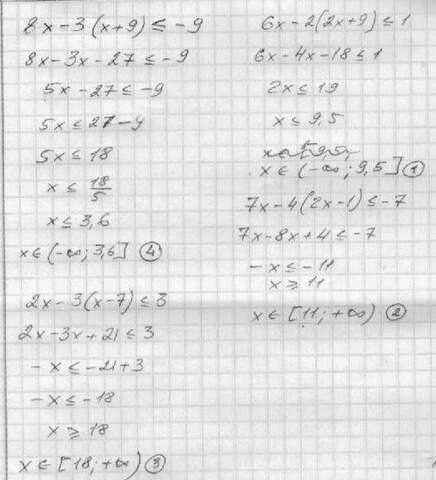 8x-3(x+9) ≤ -9
8x-3x-27 ≤ -9
5x-27 ≤ -9
5x ≤ 27-9
5x ≤ 18
x ≤ 18/5
x ≤ 3,6
x ∈ (-∞; 3,6] ④
2x-3(x-7) ≤ 3
2x-3x+21 ≤ 3
-x ≤ -21+3
-x ≤ -18
x ⩾ 18
x ∈ [18; +∞) ③
6x-2(2x+9) ≤ 1
6x-4x-18 ≤ 1
2x ≤ 19
x ≤ 9,5
x ∈ (-∞; 9,5] ①
7x-4(2x-1) ≤ -7
7x-8x+4 ≤ -7
-x ≤ -11
x ⩾ 11
x ∈ [11; +∞) ②